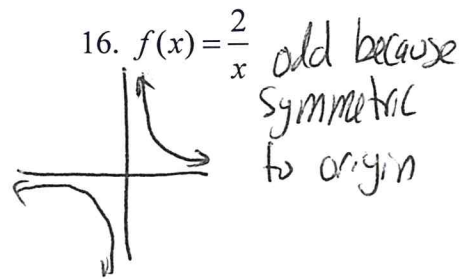 16. f(x) = 2/x
odd because
symmetric
to origin